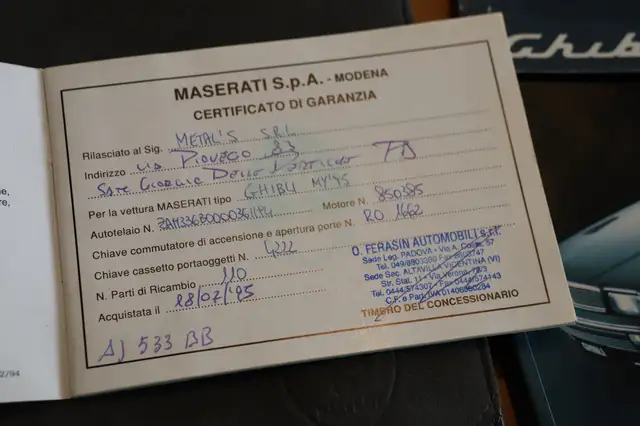 MASERATI S.p.A. - MODENA
CERTIFICATO DI GARANZIA
Rilasciato al Sig. METAL'S SRL
Indirizzo VIA PIOVEGO 83
SAN GIORGIO DELLE PERTICHE PD
Per la vettura MASERATI tipo GHIBLI MY'95
Autotelaio N. Motore N. 850385
Chiave commutatore di accensione e apertura porte N. RO 1662
Chiave cassetto portaoggetti N. 4222
N. Parti di Ricambio 110
Acquistata il 28/02/95
AJ 533 BB
O. FERASIN AUTOMOBILI s.r.l.
Sede Leg. PADOVA - Via A. 57
Tel. 049/8803360
Sede Sec. ALTAVILLA VICENTINA (VI)
Str. Stat. 11 - Via Verona, 72/3
Tel. 0444/574307 - Fax 0444/574143
C.F. e Part. IVA
TIMBRO DEL CONCESSIONARIO
Ghib
2/94